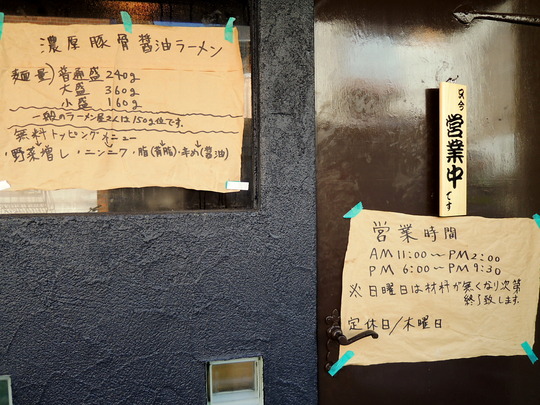 濃厚豚骨醤油ラーメン
麺量)普通盛240g
大盛360g
小盛160g
一般のラーメン屋さんは150g位です。
無料トッピングメニュー
・野菜増し・ニンニク・脂(背脂)・辛め(醤油)
只今
営業中
です
営業時間
AM11:00〜PM2:00
PM6:00〜PM9:30
※日曜日は材料が無くなり次第
終了致します。
定休日/木曜日